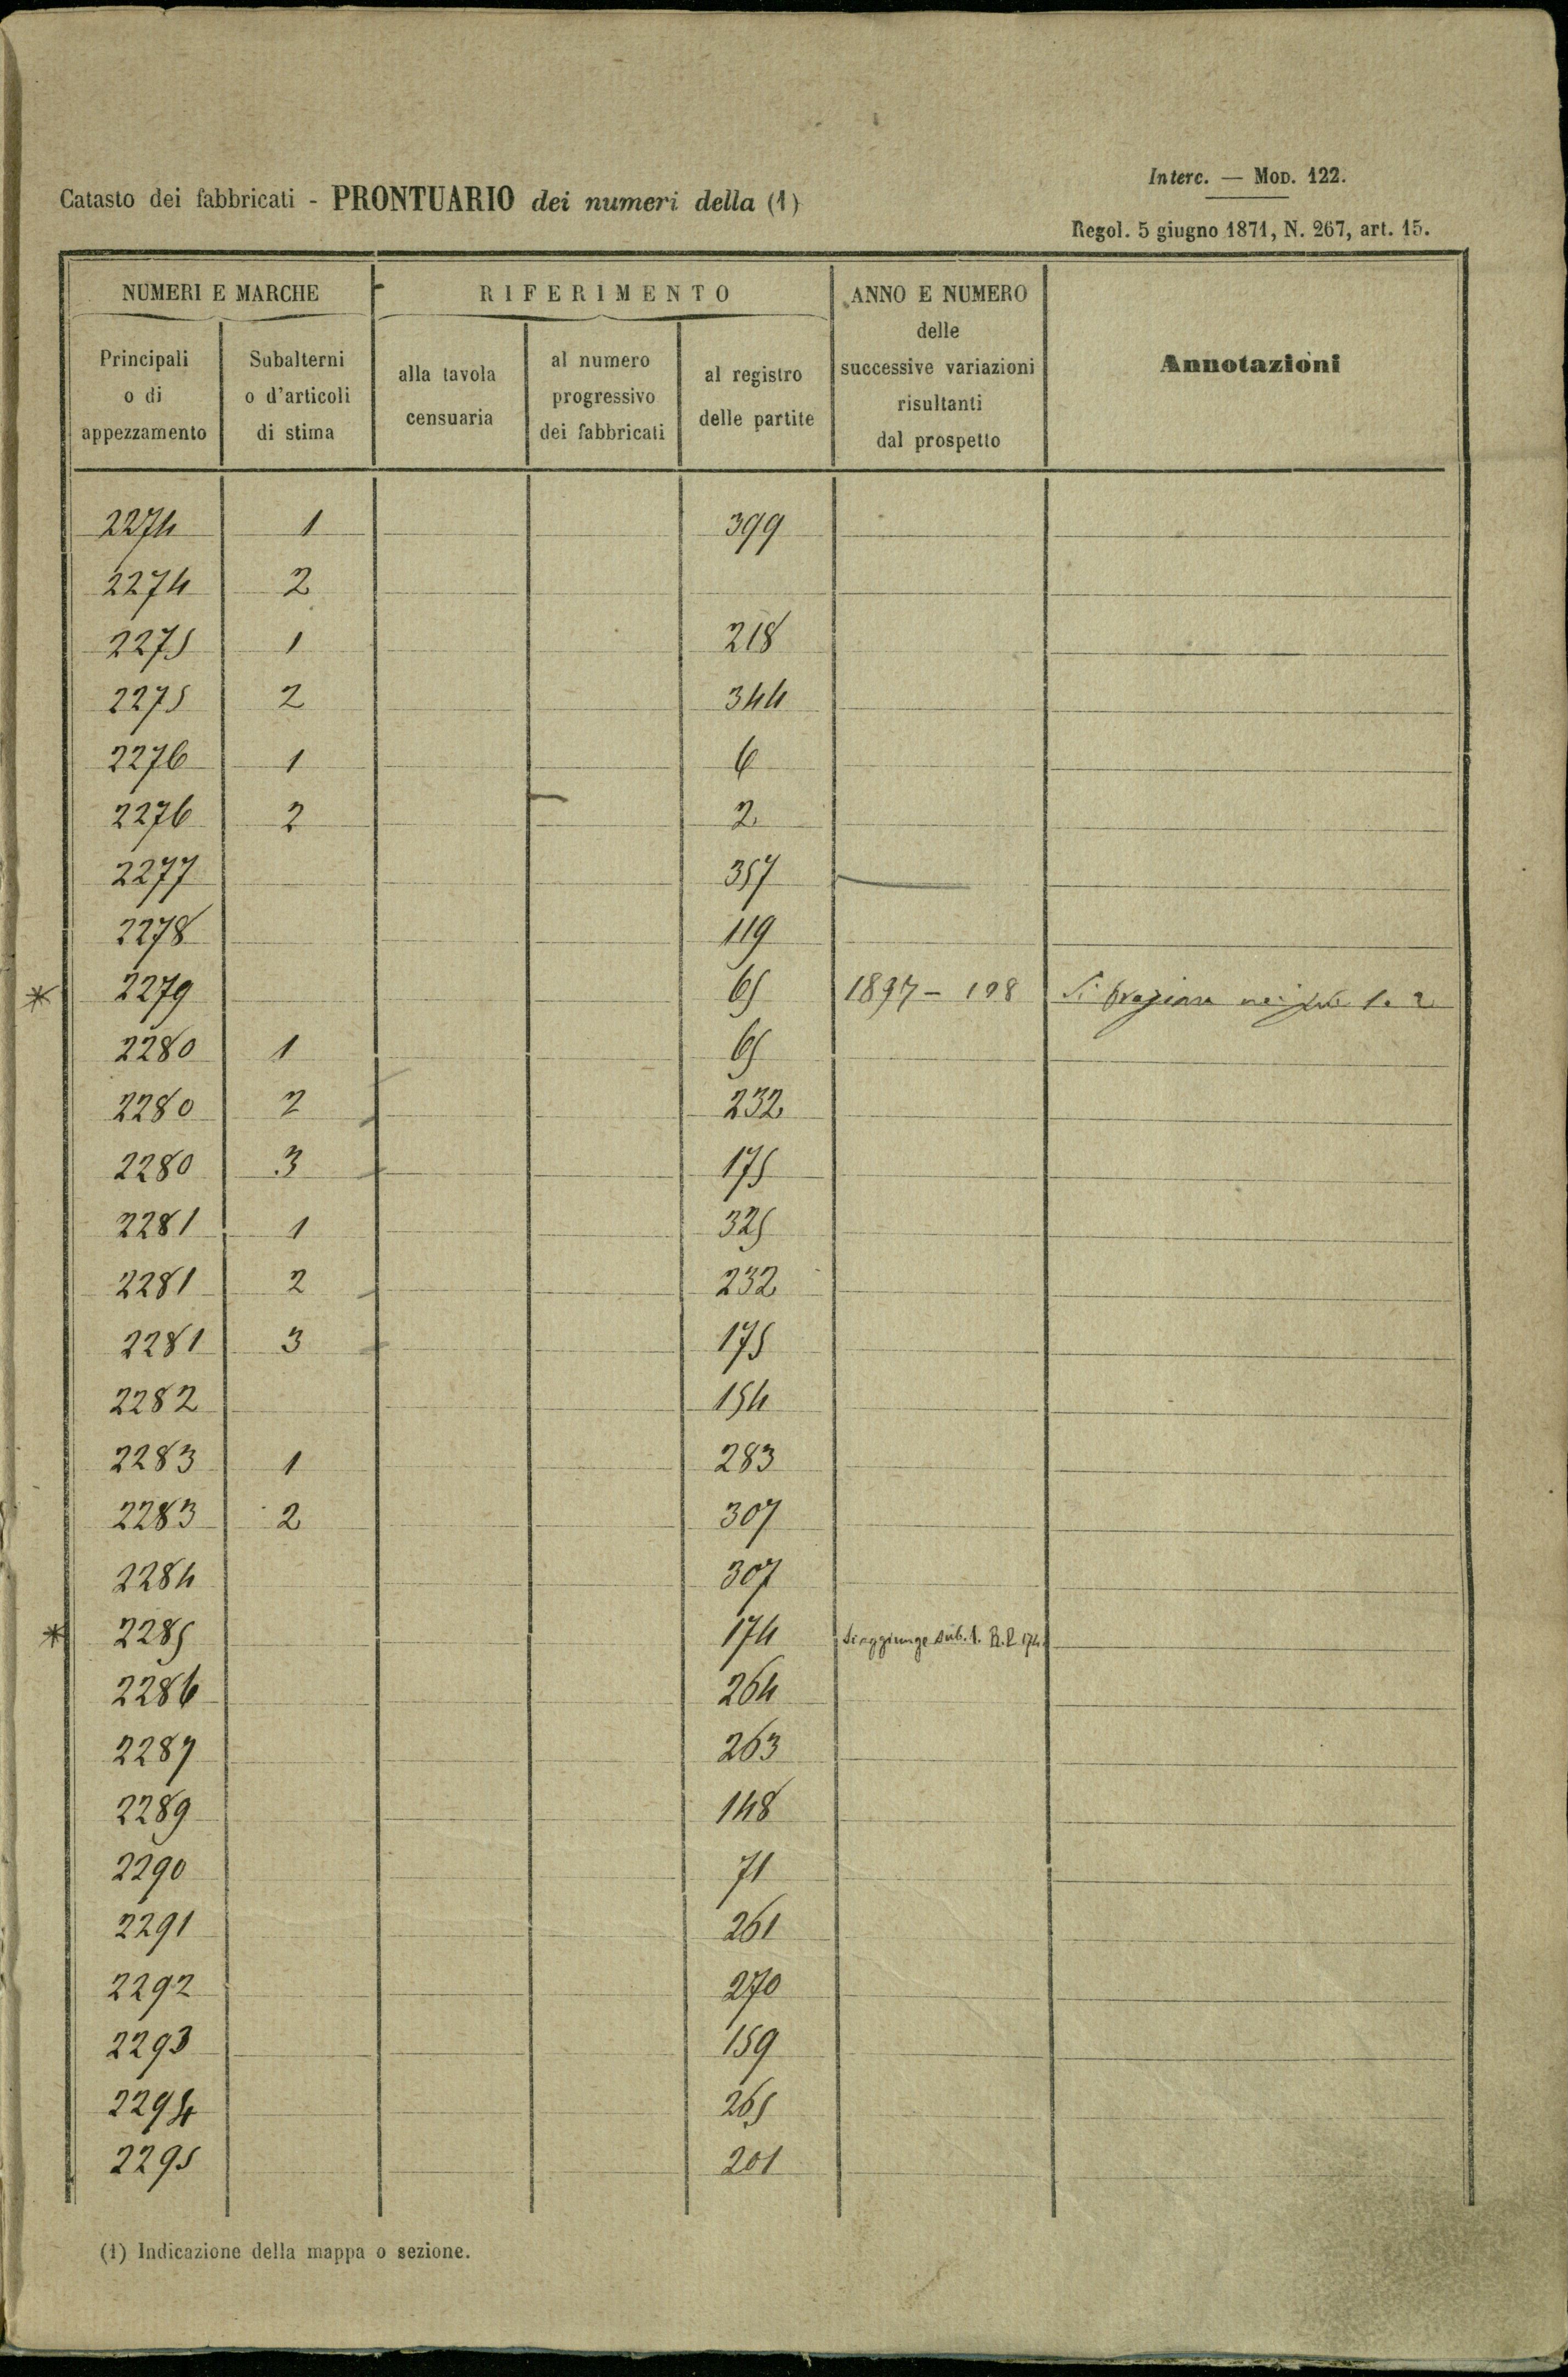 Interc. — Mod. 122.
Catasto dei fabbricati - PRONTUARIO dei numeri della (1)
Regol. 5 giugno 1871, N. 267, art. 15.
NUMERI E MARCHE
RIFERIMENTO
ANNO E NUMERO
delle
successive variazioni
risultanti
dal prospetto
Annotazioni
Principali
o di
appezzamento
Subalterni
o d'articoli
di stima
alla tavola
censuaria
al numero
progressivo
dei fabbricati
al registro
delle partite
2274 1 399
2274 2
2275 1 218
2275 2 344
2276 1 6
2276 2 2
2277 357
2278 119
* 2279 65 1897 - 108 Si fraziona nei sub 1. 2
2280 1 65
2280 2 232
2280 3 175
2281 1 325
2281 2 232
2281 3 175
2282 154
2283 1 283
2283 2 307
2284 307
* 2285 174 Si aggiunge sub. 1. R.P. 174
2286 264
2287 263
2289 148
2290 71
2291 261
2292 270
2293 159
2294 265
2295 201
(1) Indicazione della mappa o sezione.